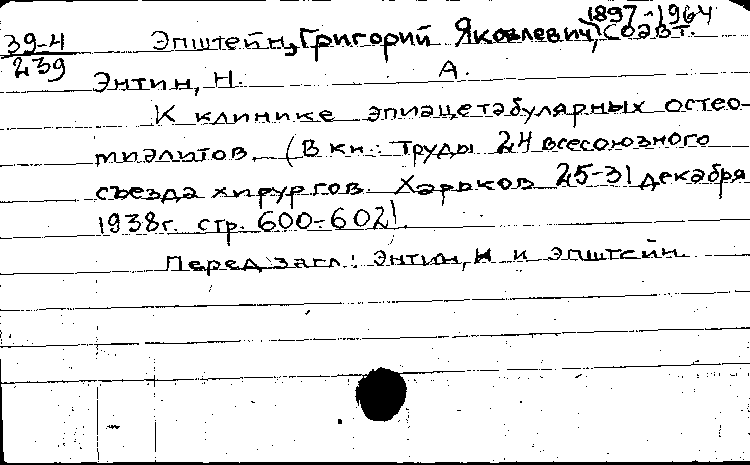 1897-1964
39-4 Эпштейн, Григорий Яковлевич, соавт.
239
Энтин, Н. А.
К клинике эпиацетабулярных остео-
миэлитов. (В кн.: Труды 24 всесоюзного
съезда хирургов. Харьков 25-31 декабря
1938г. стр. 600-602).
Перед загл.: Энтин, Н и Эпштейн.